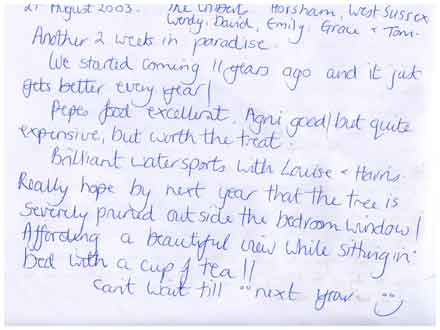 21 August 2003. The Horsham, West Sussex
Wendy, David, Emily, Grace & Tom.
Another 2 weeks in paradise.
We started coming 11 years ago and it just
gets better every year!
Pepes food excellent. Agni good/but quite
expensive, but worth the treat.
Brilliant watersports with Louise & Harris.
Really hope by next year that the tree is
severely pruned outside the bedroom window!
Affording a beautiful view while sitting in
bed with a cup of tea!!
Cant wait till next year